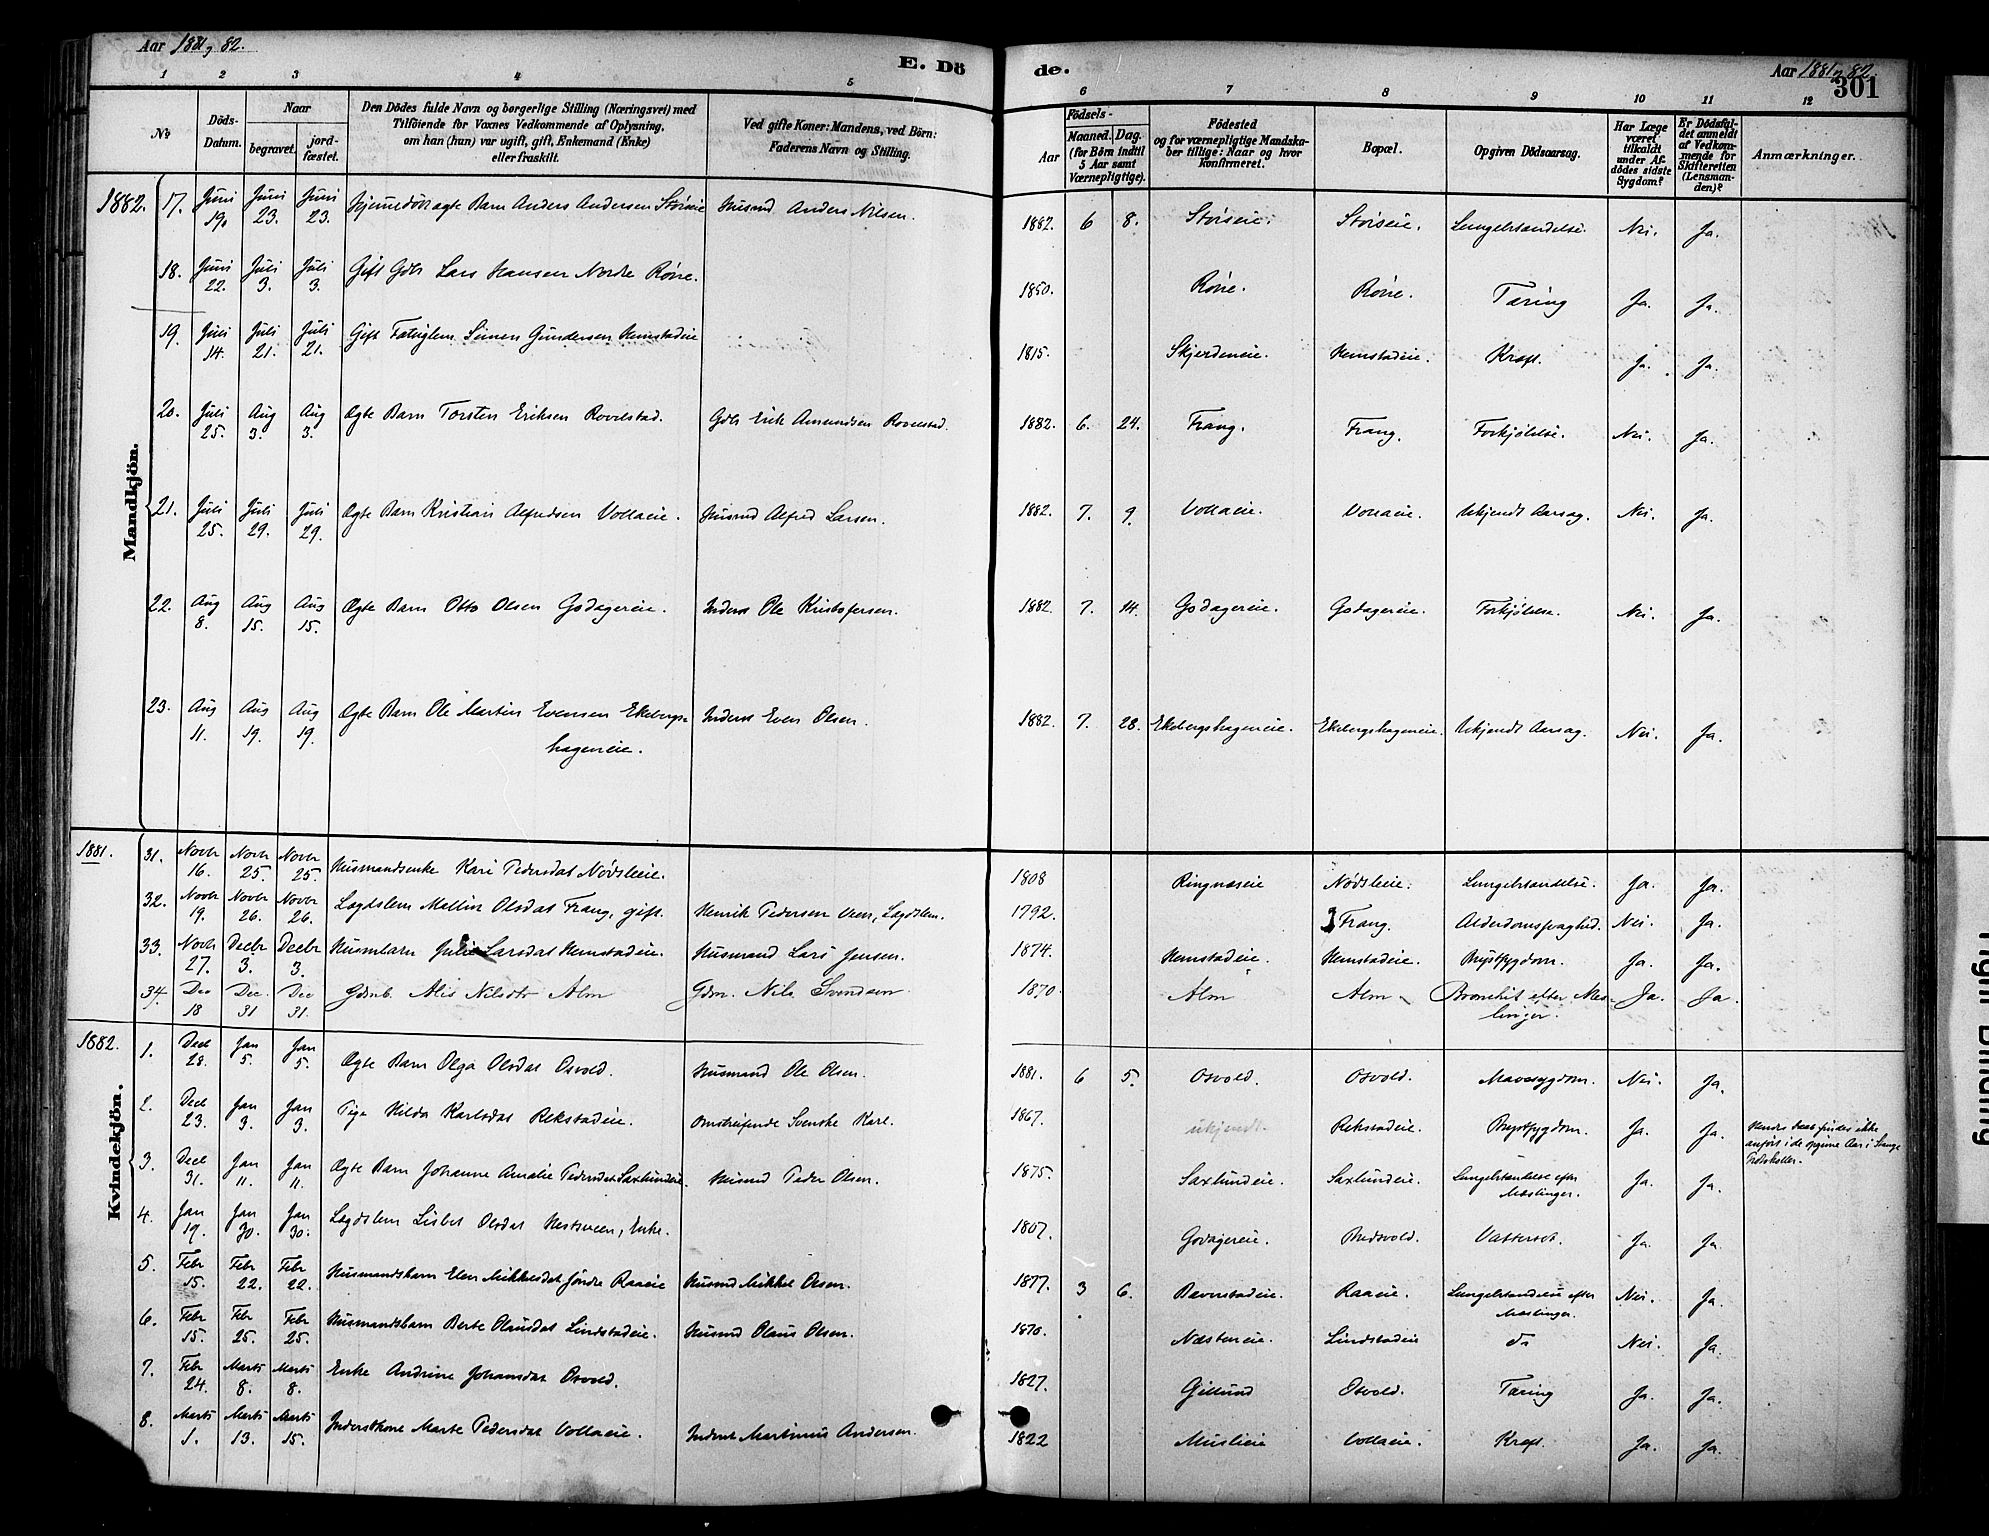 Aar 1881 og 82.
E. Dö
de.
Aar 1881 og 82.
301
1 2 3 4 5 6 7 8 9 10 11 12
No
Döds-Datum.
Naar
begravet.
jord-fæstet.
Den Dödes fulde Navn og borgerlige Stilling (Næringsvei) med
Tilföiende for Voxnes Vedkommende af Oplysning,
om han (hun) var ugift, gift, Enkemand (Enke)
eller fraskilt.
Ved gifte Koner: Mandens, ved Börn:
Faderens Navn og Stilling.
Födsels-
Aar
Maaned. Dag.
(for Börn indtil
5 Aar samt
Værnepligtige).
Födested
og for værnepligtige Mandska-
ber tillige: Naar og hvor
konfirmeret.
Bopæl.
Opgiven Dödsaarsag.
Har Læge
været
tilkaldt
under Af-
dödes sidste
Sygdom?
Er Dödsfal-
det anmeldt
af Vedkom-
mende for
Skifteretten
(Lensman-
den)?
Anmærkninger.
Mandkjön.
1882. 17. Juni 19. Juni 23. Juni 23. Hjemedöbt ægte Barn Anders Andersen Störseie Husmd Anders Nilsen. 1882. 6 8. Störseie. Störseie. Lungebetændelse. Nei. Ja.
18. Juni 22. Juli 3. Juli 3. Gift Gdbr Lars Hansen Nordre Rönne. 1850. Rönne. Rönne. Tæring Ja. Ja.
19. Juli 14. Juli 21. Juli 21. Gift Fattiglem Simen Gundersen Hemstadeie 1815. Skjerdeneie. Hemstadeie. Kræft. Ja. Ja.
20. Juli 25. Aug 3. Aug 3. Ægte Barn Torsten Eriksen Rovelstad. Gdbr Erik Amundsen Rovelstad. 1882. 6. 24. Frang. Frang. Forkjölelse. Nei. Ja.
21. Juli 25. Juli 29. Juli 29. Ægte Barn Kristian Alfredsen Vollaeie. Husmd Alfred Larsen. 1882. 7. 9. Vollaeie. Vollaeie. Ukjendt Aarsag. Nei. Ja.
22. Aug 8. Aug 15. Aug 15. Ægte Barn Otto Olsen Godagereie. Inderst Ole Kristofersen. 1882. 7. 14. Godagereie. Godagereie. Forkjölelse. Nei. Ja.
23. Aug 11. Aug 19. Aug 19. Ægte Barn Ole Martin Evensen Ekebergs- Inderst Even Olsen. 1882. 7. 28. Ekebergshageneie. Ekebergshageneie. Ukjendt Aarsag. Nei. Ja.
hageneie.
Kvindekjön.
1881. 31. Novbr 16. Novbr 25. Novbr 25. Husmandsenke Kari Pedersdat Nödsleeie. 1808 Ringnæseie Nödsleeie. Lungebetændelse. Ja. Ja.
32. Novbr 19. Novbr 26. Novbr 26. Lægdslem Mallin Olsdat Frang, gift. Henrik Pedersen Veen, Lægdslem. 1792. Frang. Alderdomssvaghed. Nei. Ja.
33. Novbr 27. Decbr 3. Decbr 3. Husmbarn Julie Larsdat Hemstadeie. Husmand Lars Jensen. 1874. Hemstadeie. Hemstadeie. Brystsygdom. Ja. Ja.
34. Dec 18 Dec. 31 Dec 31. Gdmb. Alis Nilsdtr Alm Gdm. Nils Svendsen 1870 Alm Alm Bronchit efter Mæs- Ja. Ja
linger.
1882. 1. Decb 28. Jan 5. Jan 5. Ægte Barn Olga Olsdat Osvold. Husmand Ole Olsen. 1881. 6 5. Osvold. Osvold. Mavesygdom. Nei. Ja.
2. Decb 23. Jan 3. Jan 3. Pige Hilda Karlsdat Rekstadeie. Omstreifende Svenske Karl. 1867. ukjendt. Rekstadeie. Brystsygdom. Ja. Ja. Hendes Daab findes ikke
anfört i de opgivne Aar i Stange
Protokoller.
3. Decb 31. Jan 11. Jan 11. Ægte Barn Johanne Amalie Pedersdat Saxlundeie. Husmd Peder Olsen. 1875. Saxlundeie. Saxlundeie. Lungebetændelse efter Ja. Ja.
Mæslinger.
4. Jan 19. Jan 30. Jan 30. Lægdslem Lisbet Olsdat Hestsveen, Enke. 1807. Godagereie. Bredsvold. Vattersot. Ja. Ja.
5. Febr 15. Febr 22. Febr 22. Husmandsbarn Elen Mikkelsdat Söndre Raaeie Husmd Mikkel Olsen. 1877. 3 6. Bævenstadeie. Raaeie. Lungebetændelse efter Nei. Ja.
Mæslinger.
6. Febr 15. Febr 25. Febr 25. Husmandsbarn Berte Olausdat Lindstadeie. Husmd Olaus Olsen. 1870. Næstereie. Lindstadeie do Nei. Ja.
7. Febr 24. Marts 8. Marts 8. Enke Andrine Johansdat Osvold. 1827. Gillund Osvold. Tæring Ja. Ja.
8. Marts 1. Marts 13. Marts 15. Inderstkone Marte Pedersdat Vollaeie. Inderst Martinius Andersen. 1822 Muslieie Vollaeie. Kræft. Ja. Ja.